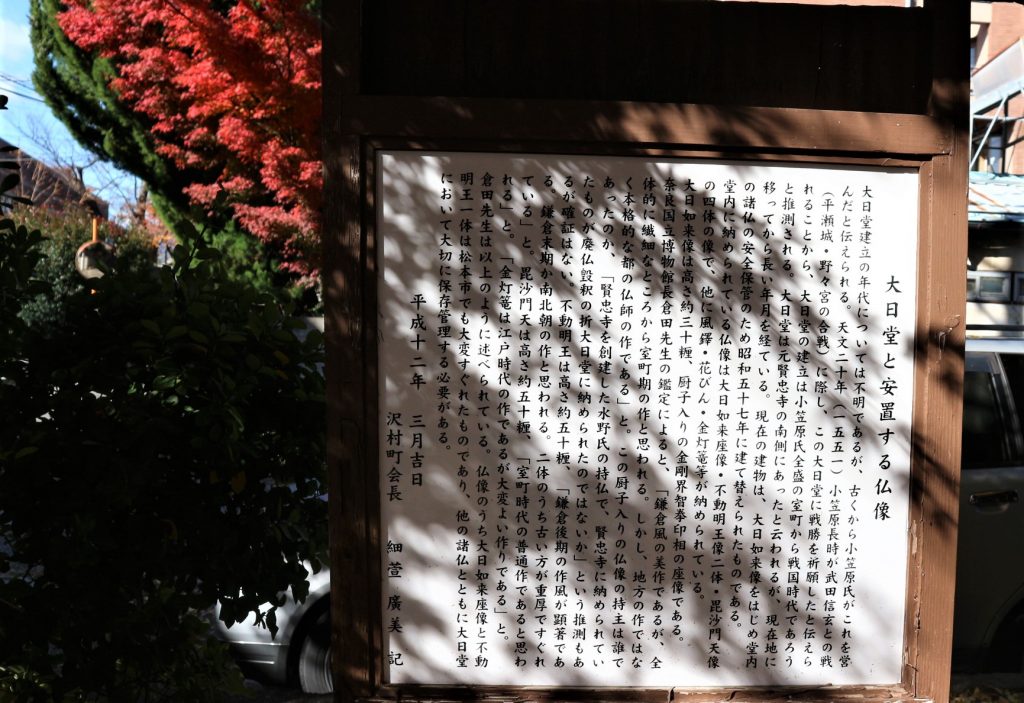 大日堂と安置する仏像
大日堂建立の年代については不明であるが、古くから小笠原氏がこれを営
んだと伝えられる。天文二十年(一五五一)小笠原長時が武田信玄との戦
(平瀬城・野々宮の合戦)に際し、この大日堂に戦勝を祈願したと伝えら
れることから、大日堂の建立は小笠原氏全盛の室町から戦国時代であろう
と推測される。大日堂は元賢忠寺の南側にあったと云われるが、現在地に
移ってから長い年月を経ている。現在の建物は、大日如来像をはじめ堂内
の諸仏の安全保管のため昭和五十七年に建て替えられたものである。
堂内に納められている仏像は大日如来座像・不動明王像二体・毘沙門天像
の四体の像で、他に風鐸・花びん・金灯篭等が納められている。
大日如来像は高さ約三十糎、厨子入りの金剛界智拳印相の座像である。
奈良国立博物館長倉田先生の鑑定によると、「鎌倉風の美作であるが、全
体的に繊細なところから室町期の作と思われる。しかし、地方の作ではな
く本格的な都の仏師の作である」と。この厨子入りの仏像の持主は誰で
あったのか、「賢忠寺を創建した水野氏の持仏で、賢忠寺に納められてい
たものが廃仏毀釈の折大日堂に納められたのではないか」という推測もあ
るが確証はない。不動明王は高さ約五十糎、「鎌倉後期の作風が顕著であ
る、鎌倉末期か南北朝の作と思われる。二体のうち古い方が重厚ですぐれ
ている」と。毘沙門天は高さ約五十糎、「室町時代の普通作であると思わ
れる」と。「金灯篭は江戸時代の作であるが大変よい作りである」と。
倉田先生は以上のように述べられている。仏像のうち大日如来座像と不動
明王一体は松本市でも大変すぐれたものであり、他の諸仏とともに大日堂
において大切に保存管理する必要がある。
平成十二年 三月吉日
沢村町会長 細萱 廣美 記